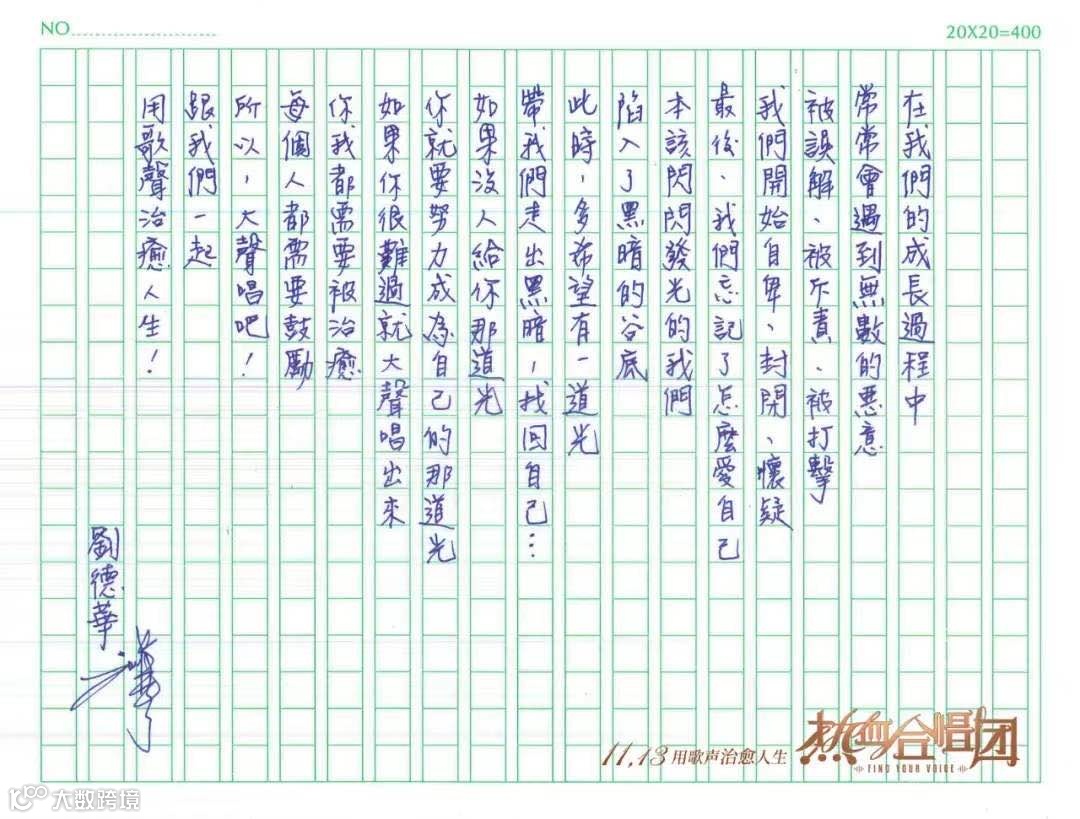 NO
20X20=400
在我們的成長過程中
常常會遇到無數的惡意
被誤解、被斥責、被打擊
我們開始自卑、封閉、懷疑
最後、我們忘記了怎麼愛自己
本該閃閃發光的我們
陷入了黑暗的谷底
此時,多希望有一道光
帶我們走出黑暗,找回自己…
如果沒人給你那道光
你就要努力成為自己的那道光
如果你很難過就大聲唱出來
你我都需要被治癒
每個人都需要鼓勵
所以,大聲唱吧!
跟我們一起
用歌聲治癒人生!
劉德華
11.13 用歌声治愈人生
热血合唱团
FIND YOUR VOICE
大数跨境